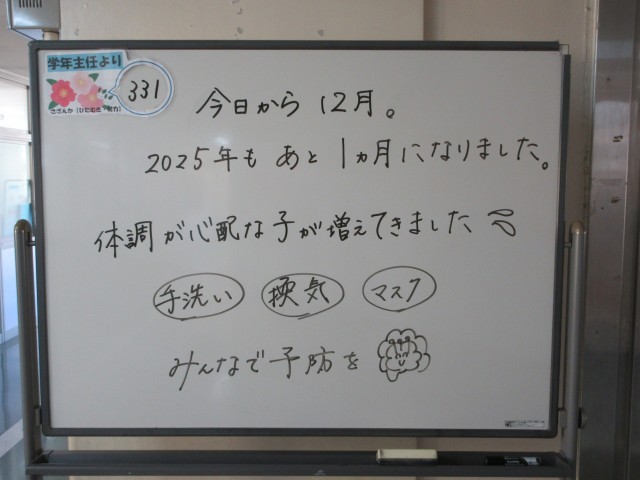 学年主任より
331
さざんか(ひたむき・努力)
今日から12月。
2025年もあと1ヵ月になりました。
体調が心配な子が増えてきました
手洗い 換気 マスク
みんなで予防を